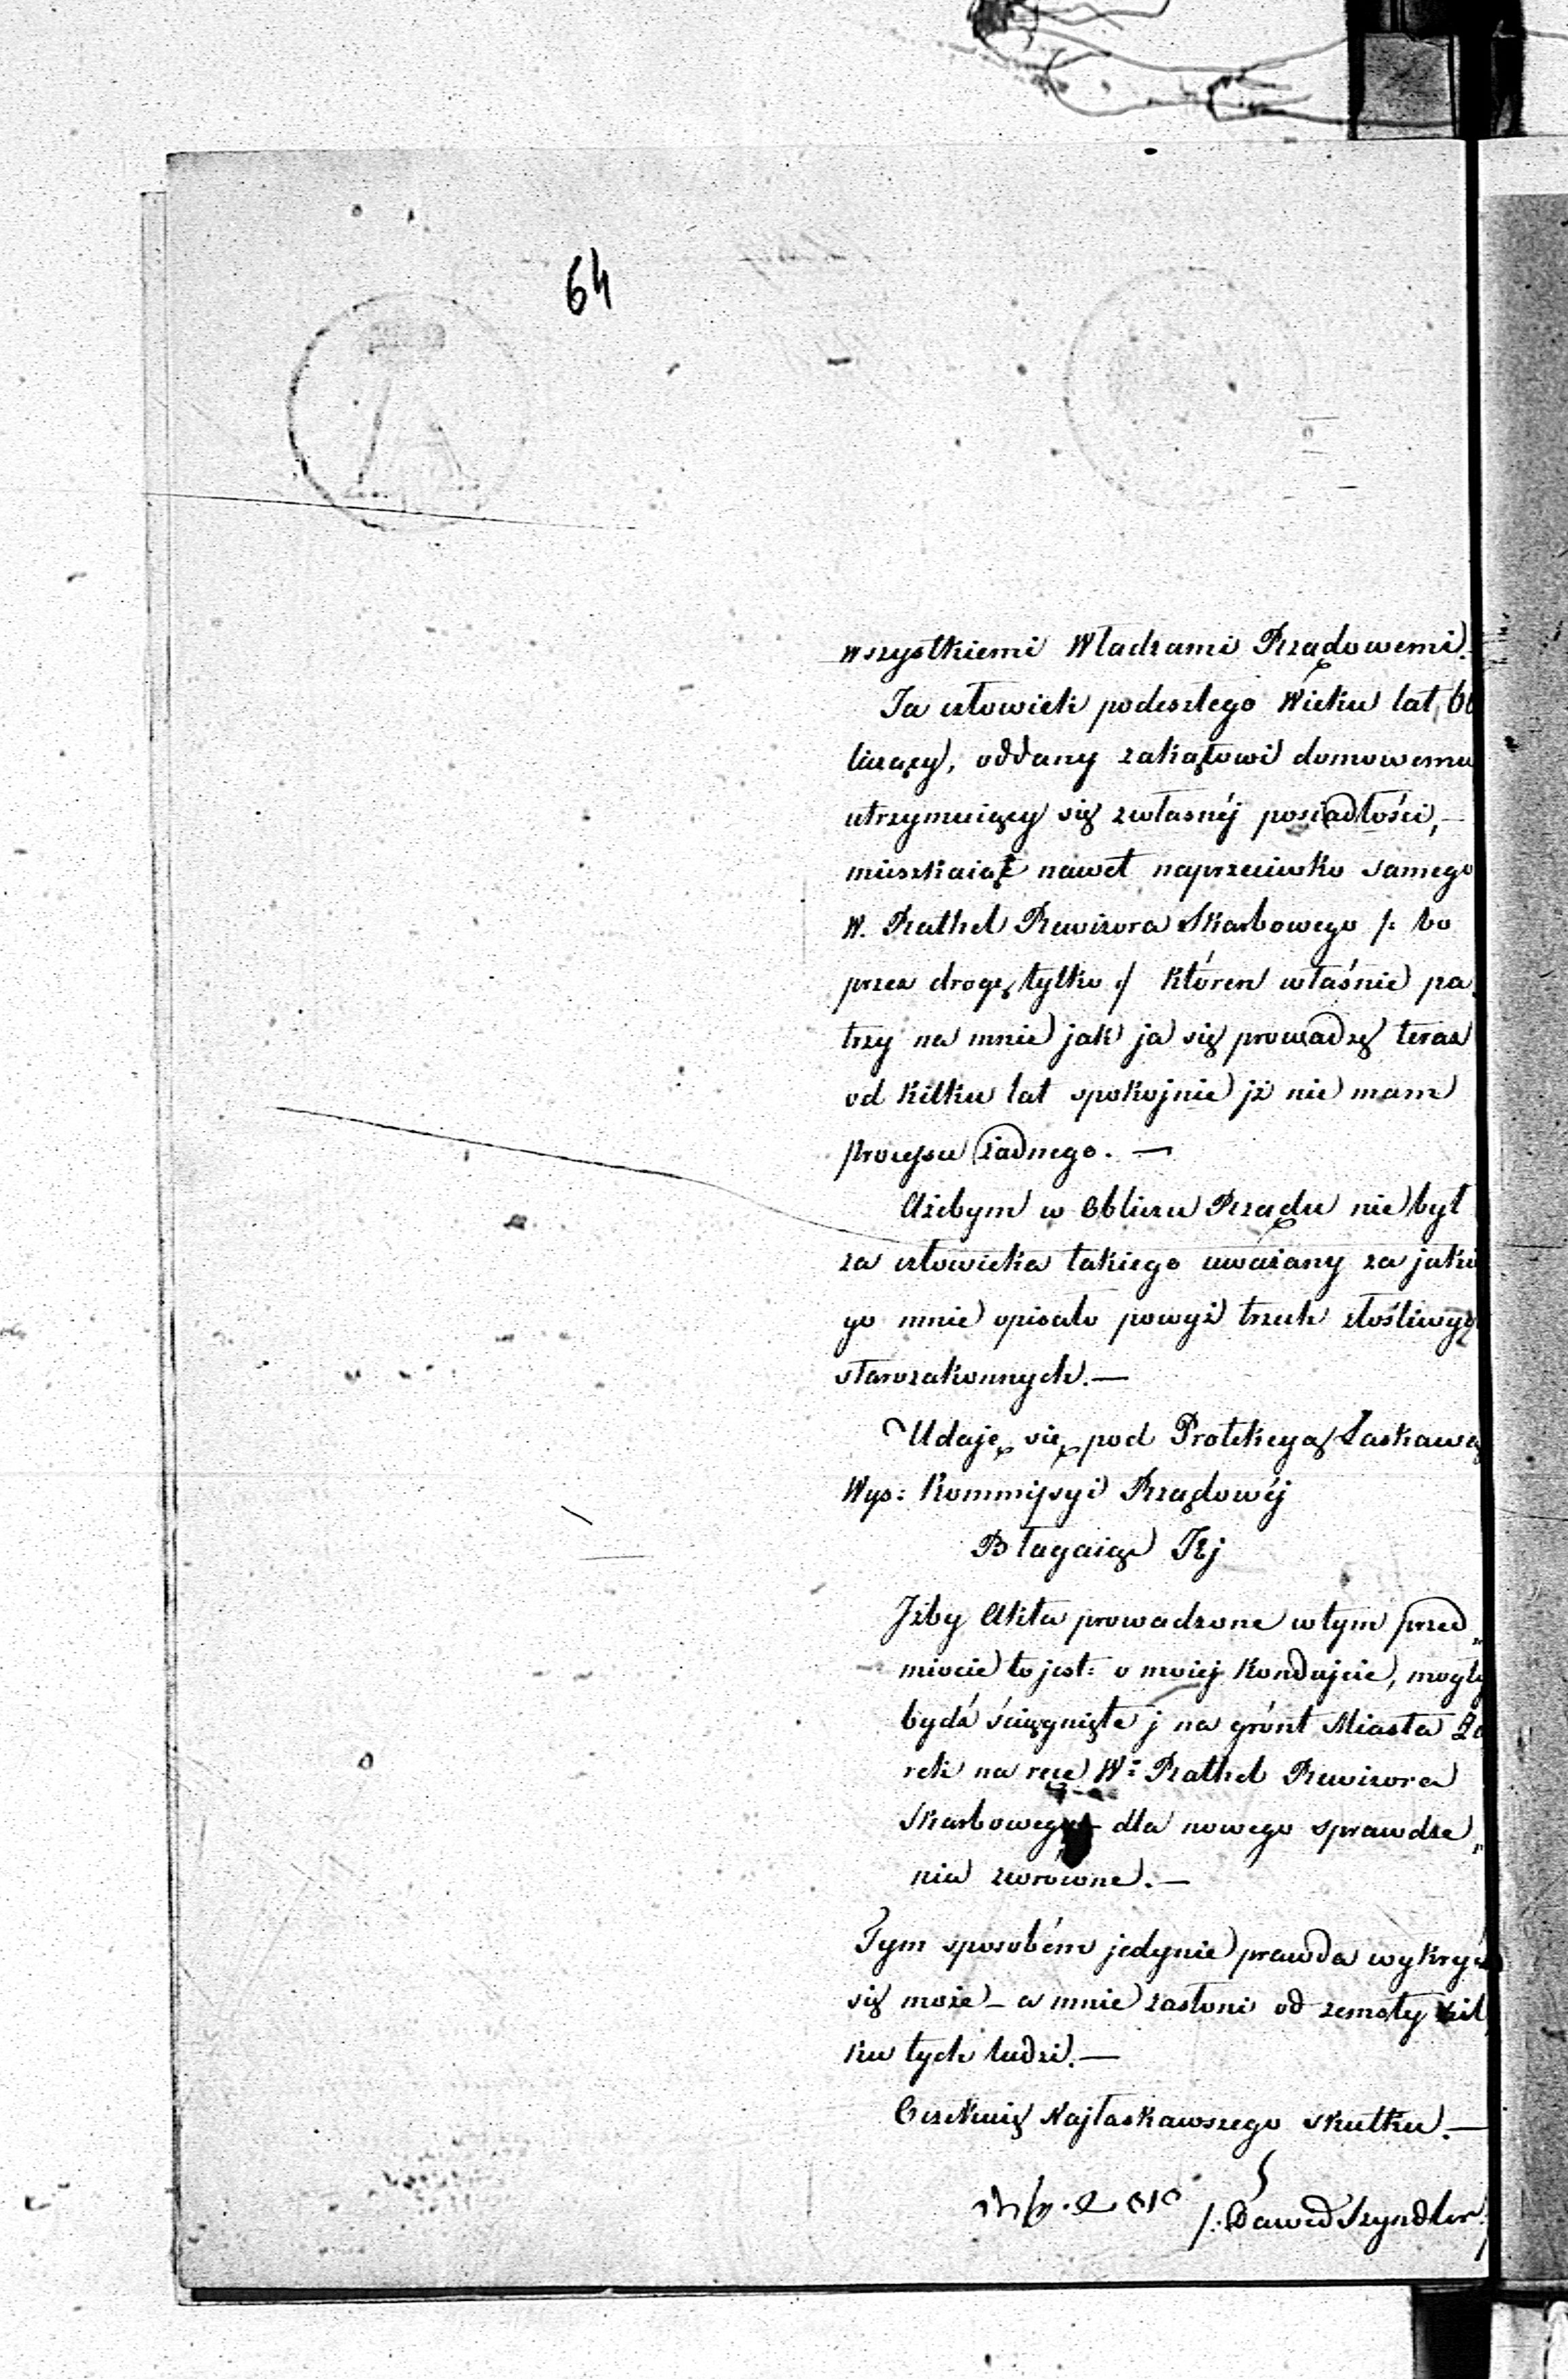 64
wszystkiemi Władzami Rządowemi.
Ja człowiek podeszłego Wieku lat
liczący, oddany zakątowi domowemu
utrzymuiący się zwłasnéj posiadłości,—
mieszkaiąc nawet naprzeciwko samego
W. Rathel Rewizora Skarbowego /: bo
przez drogę tylko :/ któren właśnie pa
trzy na mnie jak ja się prowadzę teraz
od kilku lat spokojnie jż nie mam
processu żadnego. —
Ażebym w Obliczu Rządu nie był
za człowieka takiego uważany za jakie
go mnie opisało powyż trzech złośliwych
starozakonnych.—
Udaję się pod Protekcyą Łaskawą
Wys: Kommissyi Rządowéj
Błagaiąc Jéj
Jżby Akta prowadzone wtym przed„
miocie to jest: o moiéj Kondujcie, mogły
bydź ściągnięte j na grónt Miasta Ża
rek na ręce W: Rathel Rewizora
Skarbowego dla nowego sprawdze„
nia zwrócone.—
Tym sposobém jedynie prawda wykryć
się może — a mnie zasłoni od zemsty kil
ku tych ludzi.—
Oczekuię Najłaskawszego skutku.—
/: Dawid Szyndler :/